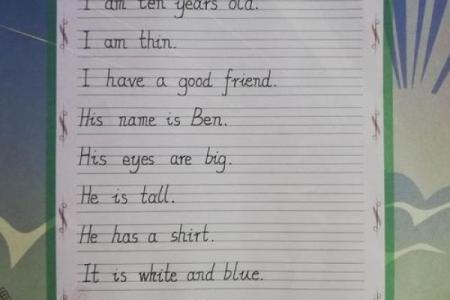 I am ten years old.
I am thin.
I have a good friend.
His name is Ben.
His eyes are big.
He is tall.
He has a shirt.
It is white and blue.